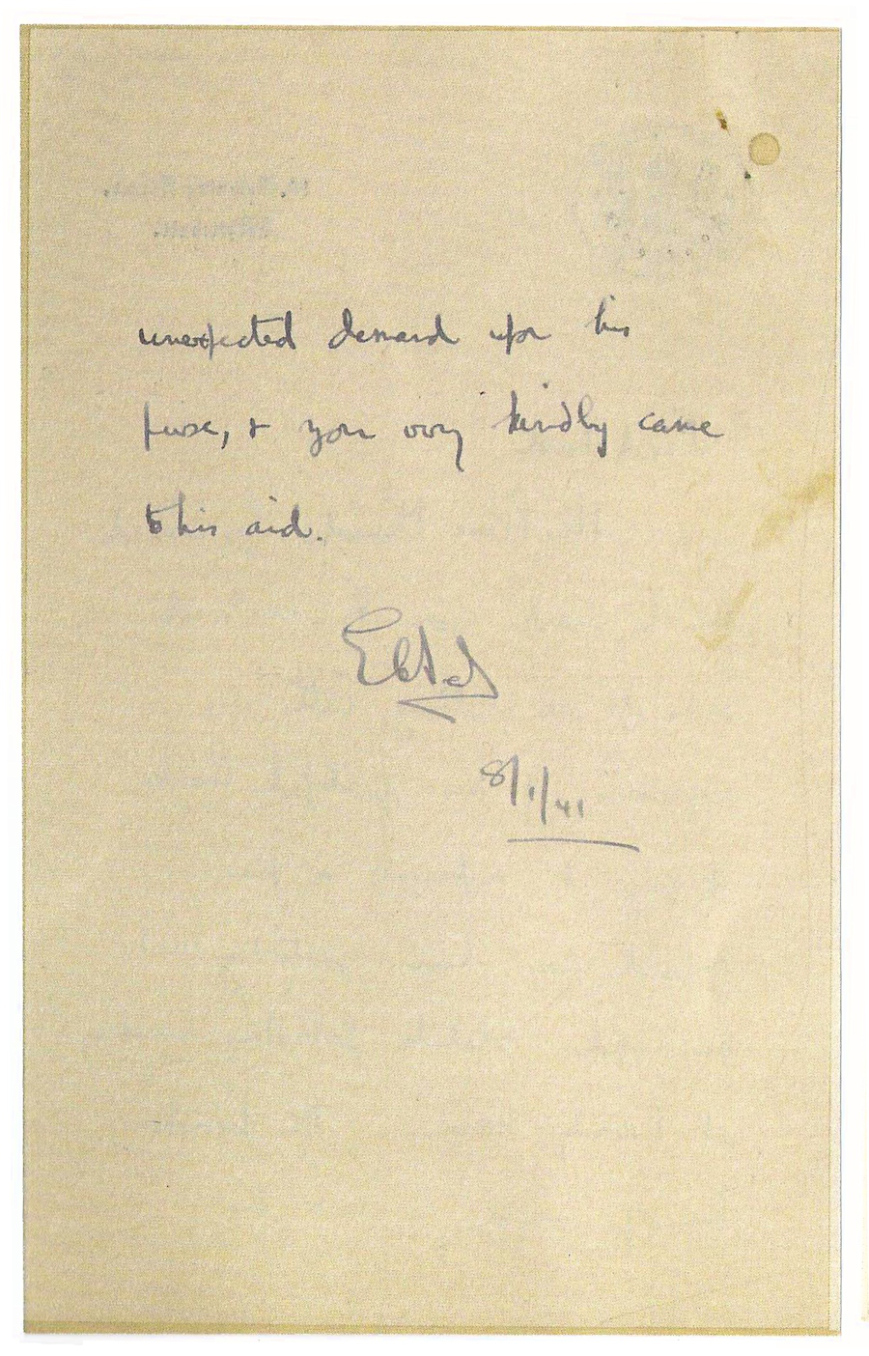 unexpected demand upon his
purse, & you very kindly came
to his aid.
8/1/41